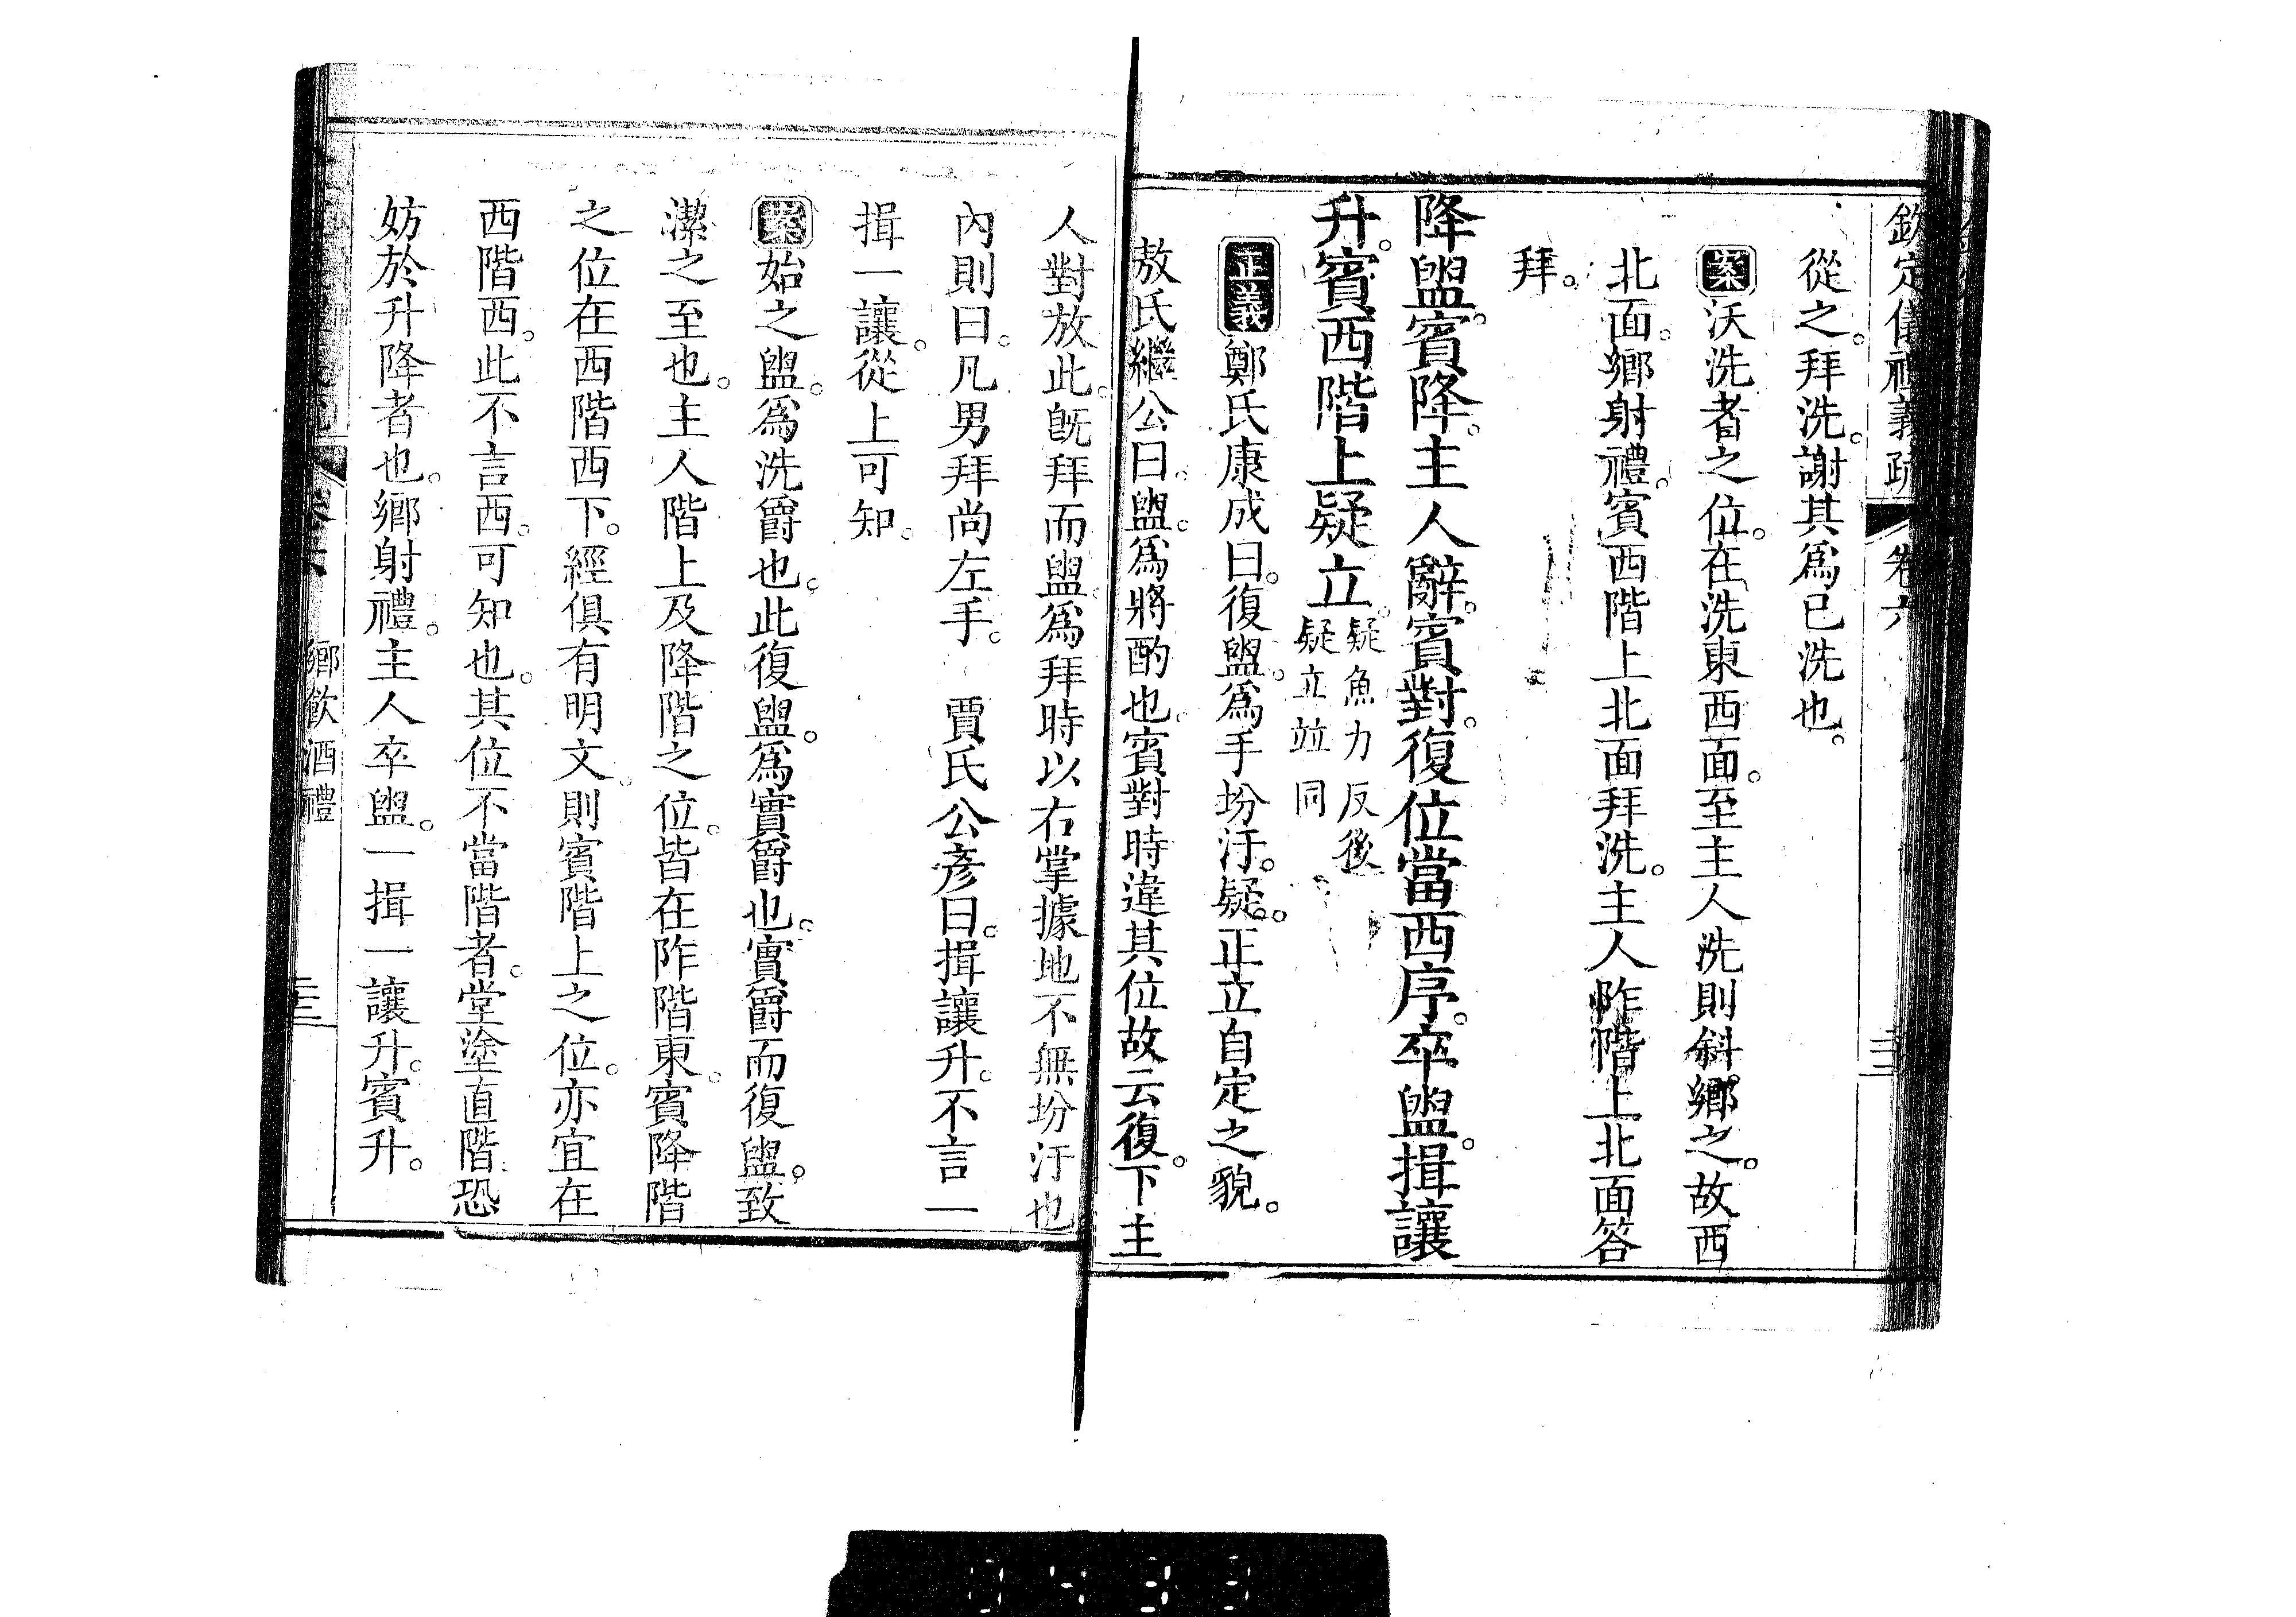 欽定儀禮義疏 卷六
從之。拜洗。謝其爲已洗也。
案沃洗者之位。在洗東西面。至主人洗則斜鄉之。故西
北面。鄉射禮。賓西階上北面拜洗。主人阼階上北面答
拜。
降盥。賓降。主人辭。賓對。復位當西序。卒盥。揖讓
升。賓西階上疑立。疑魚力反後
疑立竝同
正義鄭氏康成曰。復盥。爲手坋汙。疑。正立自定之貌。
敖氏繼公曰。盥。爲將酌也。賓對時違其位故云復。下主
人對放此。旣拜而盥。爲拜時以右掌據地不無坋汙也
內則曰。凡男拜尚左手。 賈氏公彥曰。揖讓升。不言一
揖一讓。從上可知。
案始之盥。爲洗爵也。此復盥。爲實爵也。實爵而復盥。致
潔之至也。主人階上及降階之位。皆在阼階東。賓降階
之位在西階西下。經俱有明文。則賓階上之位。亦宜在
西階西。此不言西。可知也。其位不當階者。堂塗直階恐
妨於升降者也。鄉射禮。主人卒盥。一揖一讓升。賓升。
鄉飲酒禮